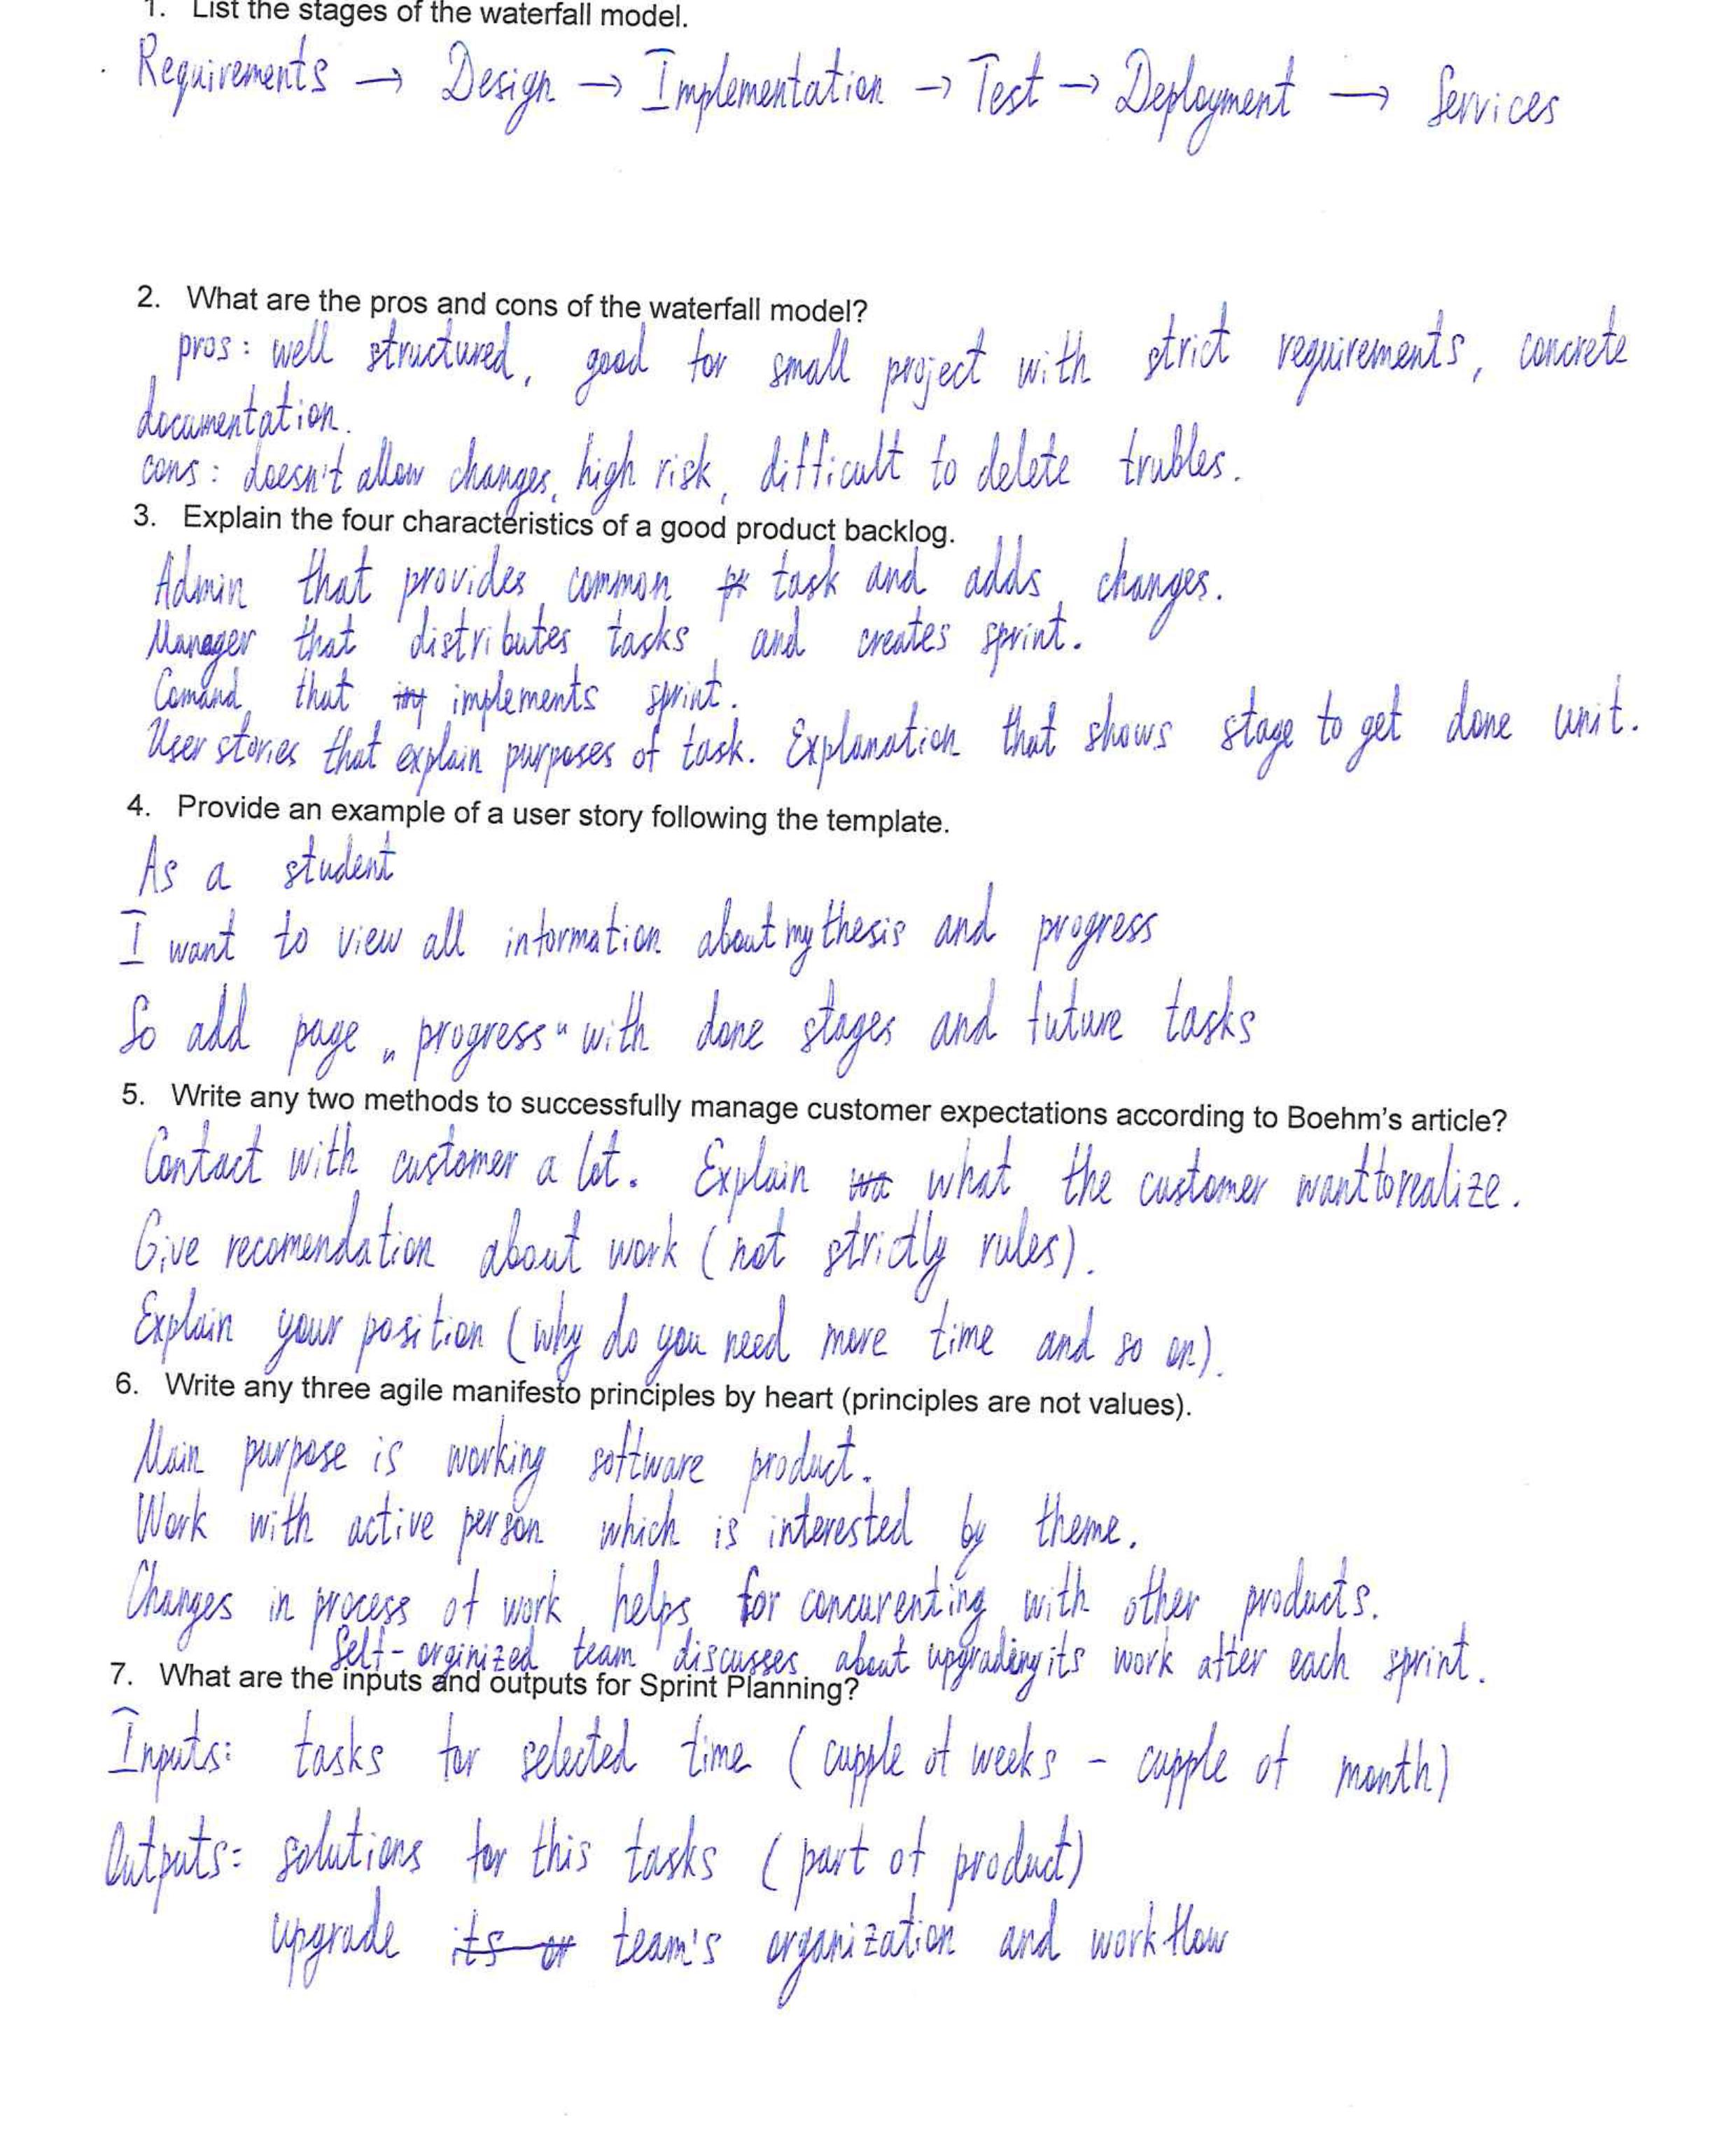 1. List the stages of the waterfall model.
Requirements → Design → Implementation → Test → Deployment → Services
2. What are the pros and cons of the waterfall model?
pros: well structured, good for small project with strict requirements, concrete
documentation.
cons: doesn't allow changes, high risk, difficult to delete trubles.
3. Explain the four characteristics of a good product backlog.
Admin that provides common task and adds changes.
Manager that distributes tasks and creates sprint.
Comand that implements sprint.
User stories that explain purposes of task. Explanation that shows stage to get done unit.
4. Provide an example of a user story following the template.
As a student
I want to view all information about my thesis and progress
So add page „progress“ with done stages and future tasks
5. Write any two methods to successfully manage customer expectations according to Boehm's article?
Contact with customer a lot. Explain what the customer want to realize.
Give recomendation about work (not strictly rules).
Explain your position (why do you need more time and so on).
6. Write any three agile manifesto principles by heart (principles are not values).
Main purpose is working software product.
Work with active person which is interested by theme.
Changes in process of work helps for concurenting with other products.
Self-orginized team discusses about upgrading its work after each sprint.
7. What are the inputs and outputs for Sprint Planning?
Inputs: tasks for selected time (cupple of weeks - cupple of month)
Outputs: solutions for this tasks (part of product)
upgrade its or team's organization and workflow